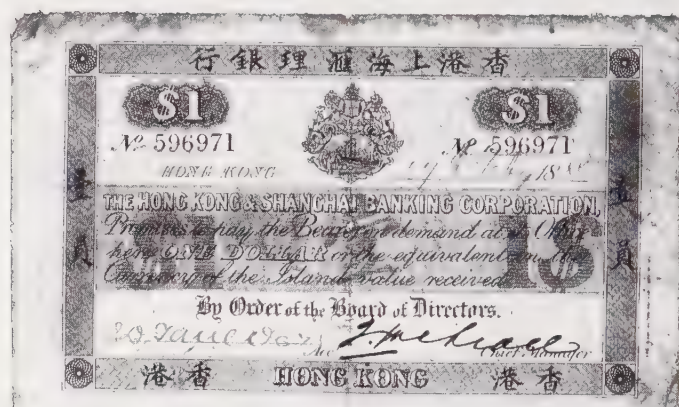 行銀理滙海上港香
$1 $1
No 596971 No 596971
HONG KONG 18
THE HONG KONG & SHANGHAI BANKING CORPORATION,
Promises to pay the Bearer on demand at its Office
here ONE DOLLAR or the equivalent in the
Currency of the Island value received.
By Order of the Board of Directors.
Acc Chief Manager
壹員
壹員
港香 HONG KONG 港香